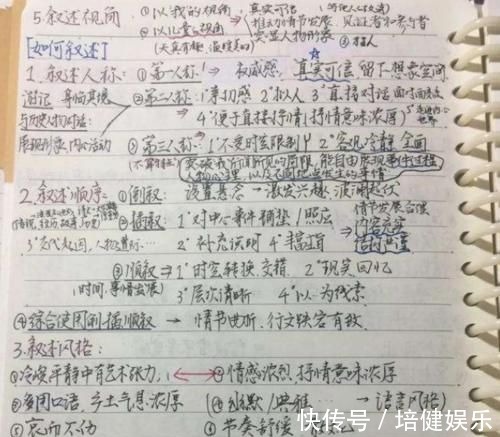 5.叙述视角 ①以"我"的视角 真实可信
②以儿童的视角 推动情节发展 见证者和参与者
(天真有趣,温暖美好) 突显人物形象
[如何叙述]
1.叙述人称:①第一人称 → 权威感,真实可信,留下想象空间
游记 身临其境 ②第二人称:1°亲切感 2°拟人 3°直接对话
与历史人物对话: 4°便于直接抒情(抒情意味浓厚)
展现形象,内心活动 ③第三人称:1°不受时空限制 2°客观冷静 全面
突破"我"所闻所见的局限,能自由展现事件过程
人物心理,以及不同地点发生的事情
2.叙述顺序:①倒叙:设置悬念→激发兴趣,波澜起伏
②插叙:1°对中心事件铺垫/照应 情节发展合理
3°交代起因,人物 2°补充说明 4°丰富 内容充实
结构严谨
③顺叙 → 1°时空转换,交错 2°现实,回忆
(时间,事情发展) 3°层次清晰 4°以一为线索
④综合使用倒插顺叙 → 情节曲折,行文跌宕有致
3.叙述风格:
①冷峻平静中有艺术张力 ②情感浓烈,抒情意味浓厚
③多用口语,乡土气息浓厚 ④幽默/典雅… → 语言风格
⑤哀而不伤 ⑥节奏舒缓
快传号 / 培健娱乐